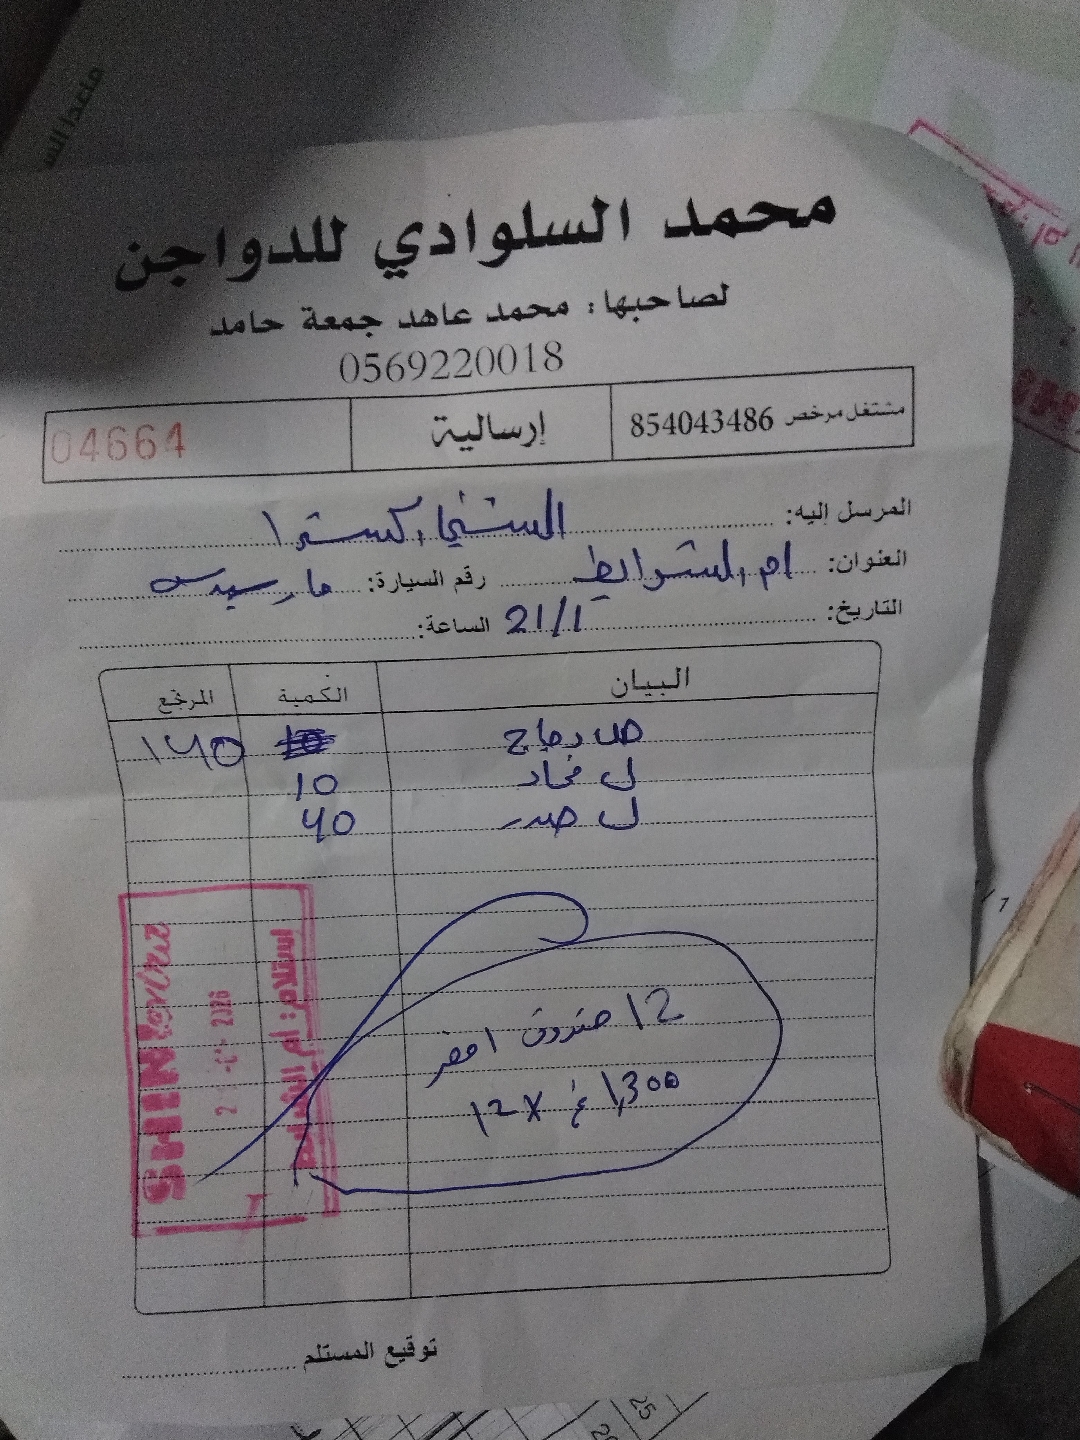 محمد السلوادي للدواجن
لصاحبها: محمد عاهد جمعة حامد
0569220018
مشتغل مرخص 854043486 إرسالية 04664
المرسل إليه: الشني اكسترا
العنوان: ام الشرايط رقم السيارة: مارسيدس
التاريخ: 21/1 الساعة:
البيان الكمية المرتجع
دجاج
ل فخاد 10
ل صدر 40
12 صندوق اخضر
1,300 غ 12X
SHINI extra
2026
استلام: ام الشرايط
توقيع المستلم
25